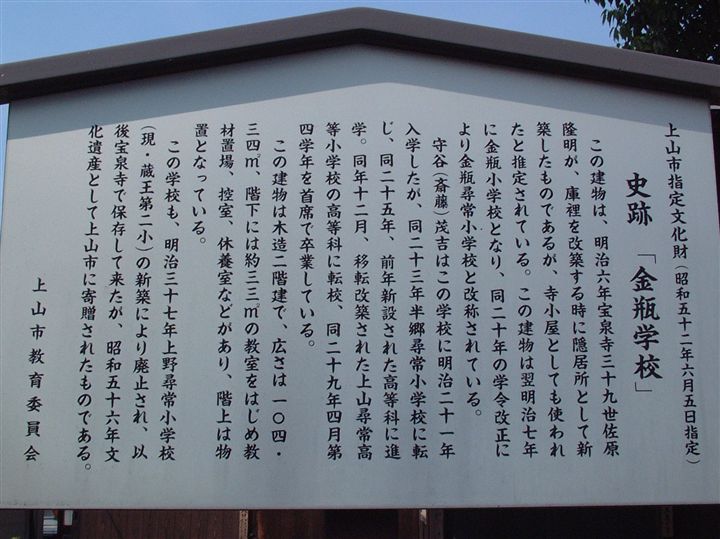 上山市指定文化財(昭和五十二年六月五日指定)
史跡「金瓶学校」
この建物は、明治六年宝泉寺三十九世佐原
隆明が、庫裡を改築する時に隠居所として新
築したものであるが、寺小屋としても使われ
たと推定されている。この建物は翌明治七年
に金瓶小学校となり、同二十年の学令改正に
より金瓶尋常小学校と改称されている。
守谷(斎藤)茂吉はこの学校に明治二十一年
入学したが、同二十三年半郷尋常小学校に転
じ、同二十五年、前年新設された高等科に進
学。同年十二月、移転改築された上山尋常高
等小学校の高等科に転校、同二十九年四月第
四学年を首席で卒業している。
この建物は木造二階建で、広さは一〇四・
三四㎡、階下には約三三㎡の教室をはじめ教
材置場、控室、休養室などがあり、階上は物
置となっている。
この学校も、明治三十七年上野尋常小学校
(現・蔵王第二小)の新築により廃止され、以
後宝泉寺で保存して来たが、昭和五十六年文
化遺産として上山市に寄贈されたものである。
上山市教育委員会